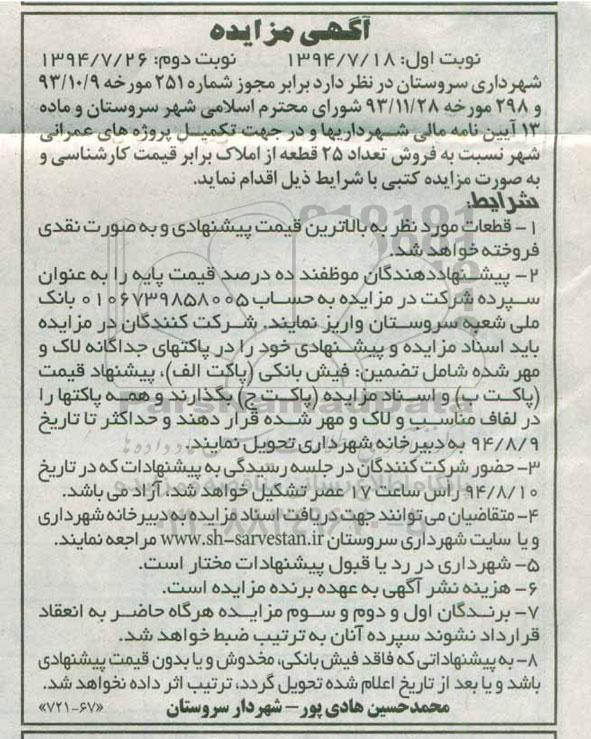 آگهی مزایده
نوبت اول: ۱۳۹۴/۷/۱۸ نوبت دوم: ۱۳۹۴/۷/۲۶
شهرداری سروستان در نظر دارد برابر مجوز شماره ۲۵۱ مورخه ۹۳/۱۰/۹
و ۲۹۸ مورخه ۹۳/۱۱/۲۸ شورای محترم اسلامی شهر سروستان و ماده
۱۳ آیین نامه مالی شهرداریها و در جهت تکمیل پروژه های عمرانی
شهر نسبت به فروش تعداد ۲۵ قطعه از املاک برابر قیمت کارشناسی و
به صورت مزایده کتبی با شرایط ذیل اقدام نماید.
شرایط:
۱- قطعات مورد نظر به بالاترین قیمت پیشنهادی و به صورت نقدی
فروخته خواهد شد.
۲- پیشنهاددهندگان موظفند ده درصد قیمت پایه را به عنوان
سپرده شرکت در مزایده به حساب ۰۱۰۶۷۳۹۸۵۸۰۰۵ بانک
ملی شعبه سروستان واریز نمایند. شرکت کنندگان در مزایده
باید اسناد مزایده و پیشنهادی خود را در پاکتهای جداگانه لاک و
مهر شده شامل تضمین: فیش بانکی (پاکت الف)، پیشنهاد قیمت
(پاکت ب) و اسناد مزایده (پاکت ج) بگذارند و همه پاکتها را
در لفاف مناسب و لاک و مهر شده قرار دهند و حداکثر تا تاریخ
۹۴/۸/۹ به دبیرخانه شهرداری تحویل نمایند.
۳- حضور شرکت کنندگان در جلسه رسیدگی به پیشنهادات که در تاریخ
۹۴/۸/۱۰ راس ساعت ۱۷ عصر تشکیل خواهد شد، آزاد می باشد.
۴- متقاضیان می توانند جهت دریافت اسناد مزایده به دبیرخانه شهرداری
و یا سایت شهرداری سروستان www.sh-sarvestan.ir مراجعه نمایند.
۵- شهرداری در رد یا قبول پیشنهادات مختار است.
۶- هزینه نشر آگهی به عهده برنده مزایده است.
۷- برندگان اول و دوم و سوم مزایده هرگاه حاضر به انعقاد
قرارداد نشوند سپرده آنان به ترتیب ضبط خواهد شد.
۸- به پیشنهاداتی که فاقد فیش بانکی، مخدوش و یا بدون قیمت پیشنهادی
باشد و یا بعد از تاریخ اعلام شده تحویل گردد، ترتیب اثر داده نخواهد شد.
محمدحسین هادی پور- شهردار سروستان «۷۲۱-۶۷»